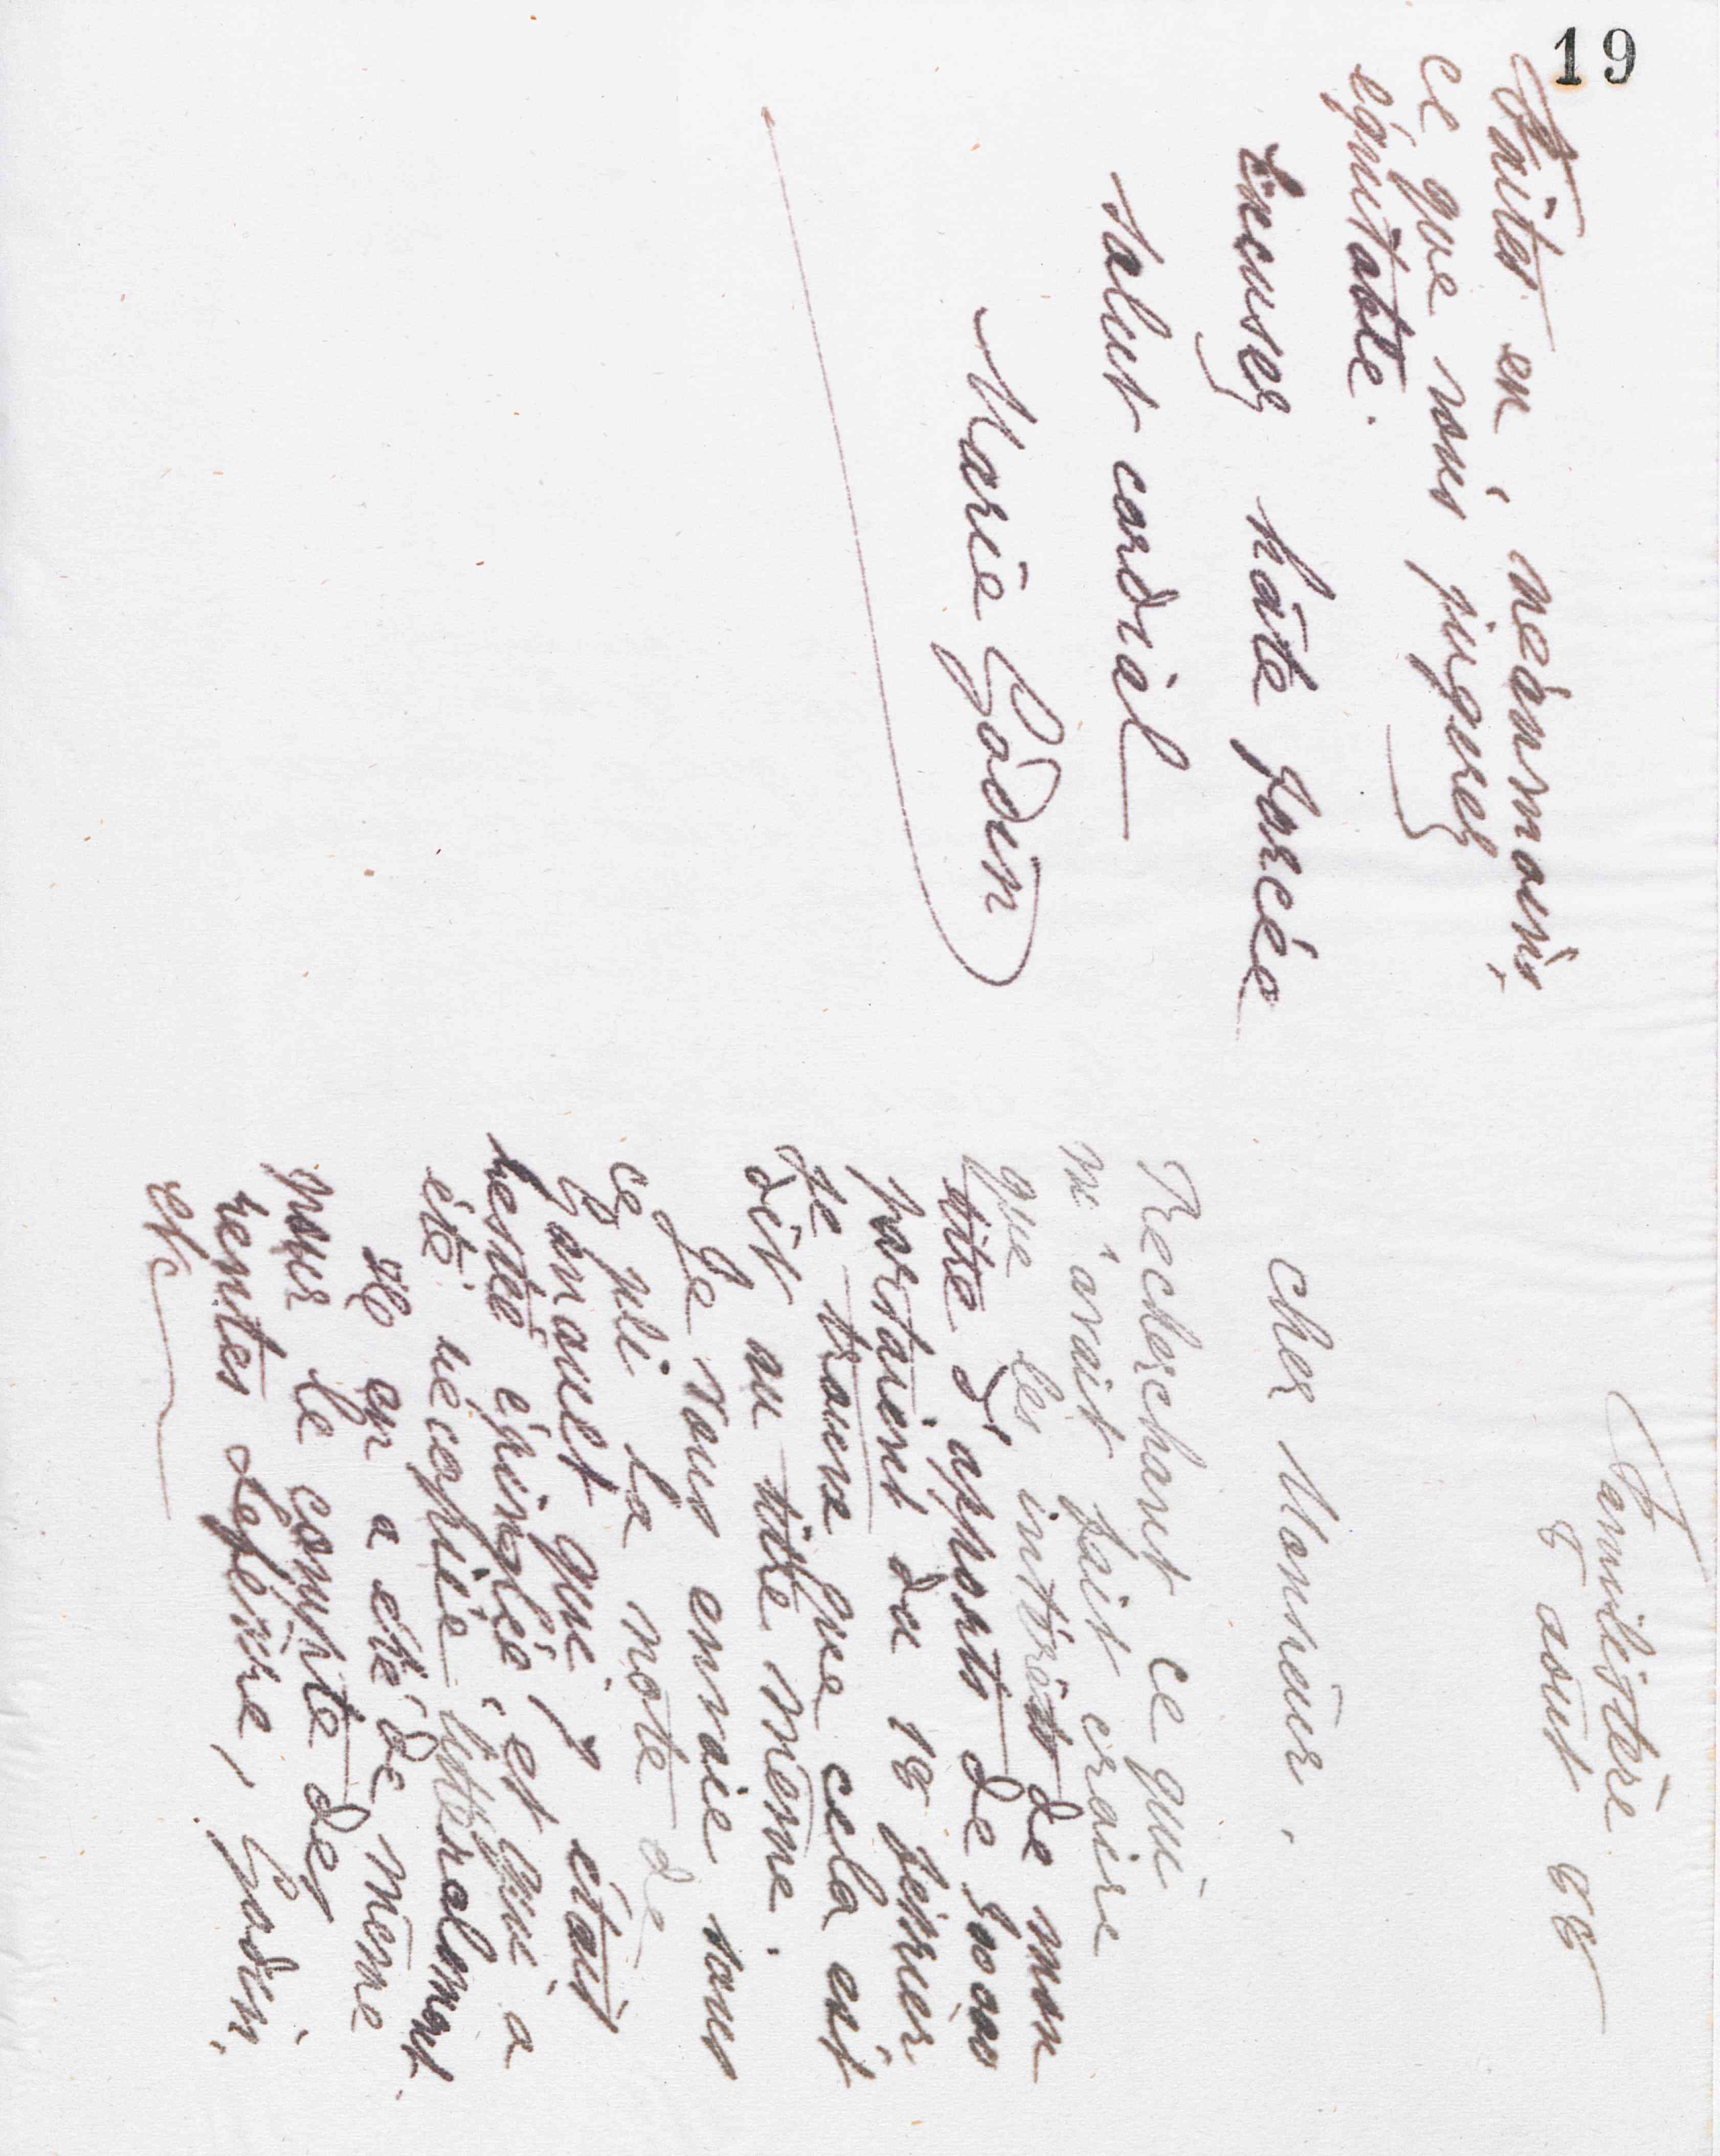 19
Familistère
8 août 88
Cher Monsieur,
Recherchant ce qui
m'avait fait croire
que les intérêts de mon
titre d'apports de
portaient du 18 février
je trouve que cela est
dit au titre même.
Je vous envoie sous
ce pli la note de
Gonavet que j'étais
restée épinglée et qui a
été recopiée littéralement.
Il en a été de même
pour le compte des
rentes Lefèvre, Godin,
etc
Faites en néanmoins,
ce que vous jugerez
équitable.
Excusez hâte forcée
Salut cordial
Marie Godin